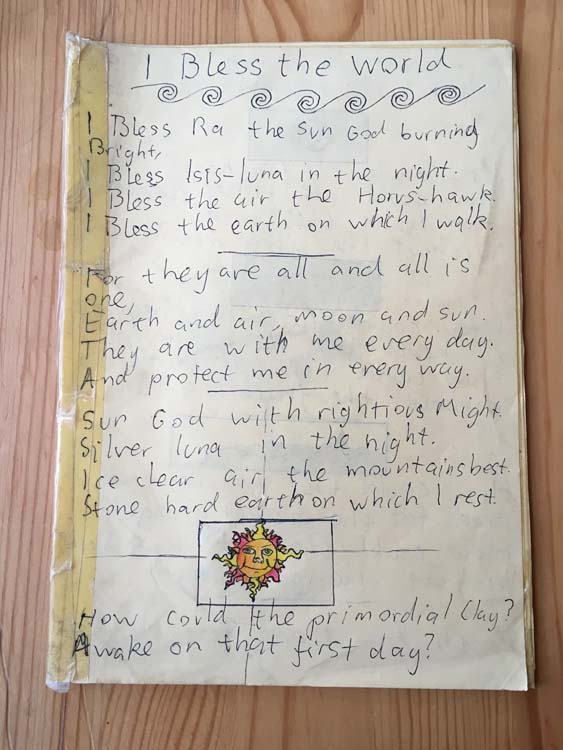 I Bless the world
I Bless Ra the Sun God burning
Bright,
I Bless Isis-luna in the night.
I Bless the air the Horus-hawk.
I Bless the earth on which I walk.
For they are all and all is
one,
Earth and air, moon and sun.
They are with me every day.
And protect me in every way.
Sun God with rightious Might.
Silver luna in the night.
Ice clear air the mountains best.
Stone hard earth on which I rest.
How could the primordial Clay?
Awake on that first day?